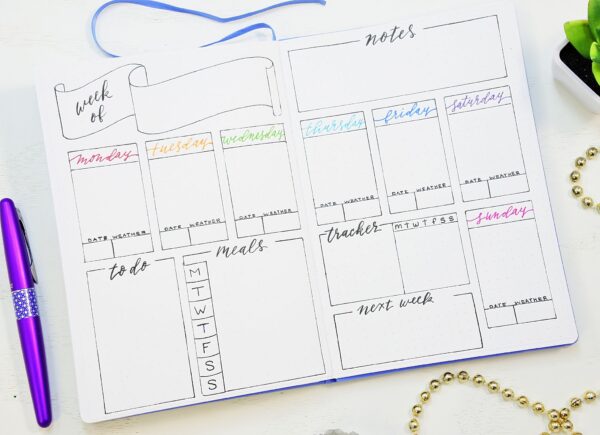 week
of
monday
tuesday
wednesday
DATE WEATHER
DATE WEATHER
DATE WEATHER
to do
meals
M
T
W
T
F
S
S
notes
thursday
friday
saturday
DATE WEATHER
DATE WEATHER
DATE WEATHER
tracker
M T W T F S S
sunday
DATE WEATHER
next week